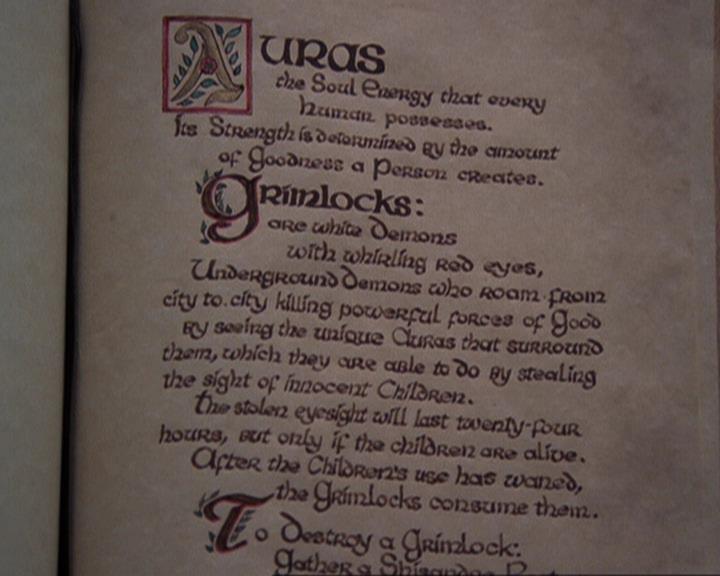 AURAS
the Soul Energy that every
human possesses.
Its Strength is determined by the amount
of Goodness a Person creates.
Grimlocks:
are white Demons
with whirling red eyes,
Underground Demons who roam from
city to city killing powerful forces of Good
By seeing the unique Auras that surround
them, which they are able to do by stealing
the sight of innocent Children.
the stolen eyesight will last twenty-four
hours, but only if the children are alive.
After the Children's use has waned,
the Grimlocks consume them.
To Destroy a Grimlock:
Gather a Shisandra